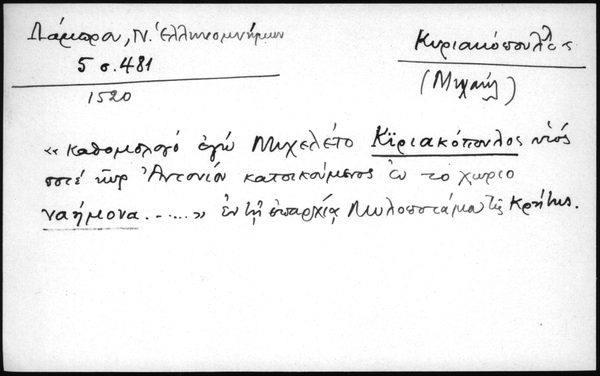 Λάμπρου, Ν. Ἑλληνομνήμων
5 σ. 481
1520
Κυριακόπουλος
(Μιχαήλ)
«καθομολογό ἐγώ Μιχελέτο Κϊριακόπουλος υἱός
ποτέ κῦρ Ἀντονίου κατοικούμενος ἐν τό χωριο
ναήμονα.......» ἐν τῇ ἐπαρχίᾳ Μυλοποτάμου τῆς Κρήτης.